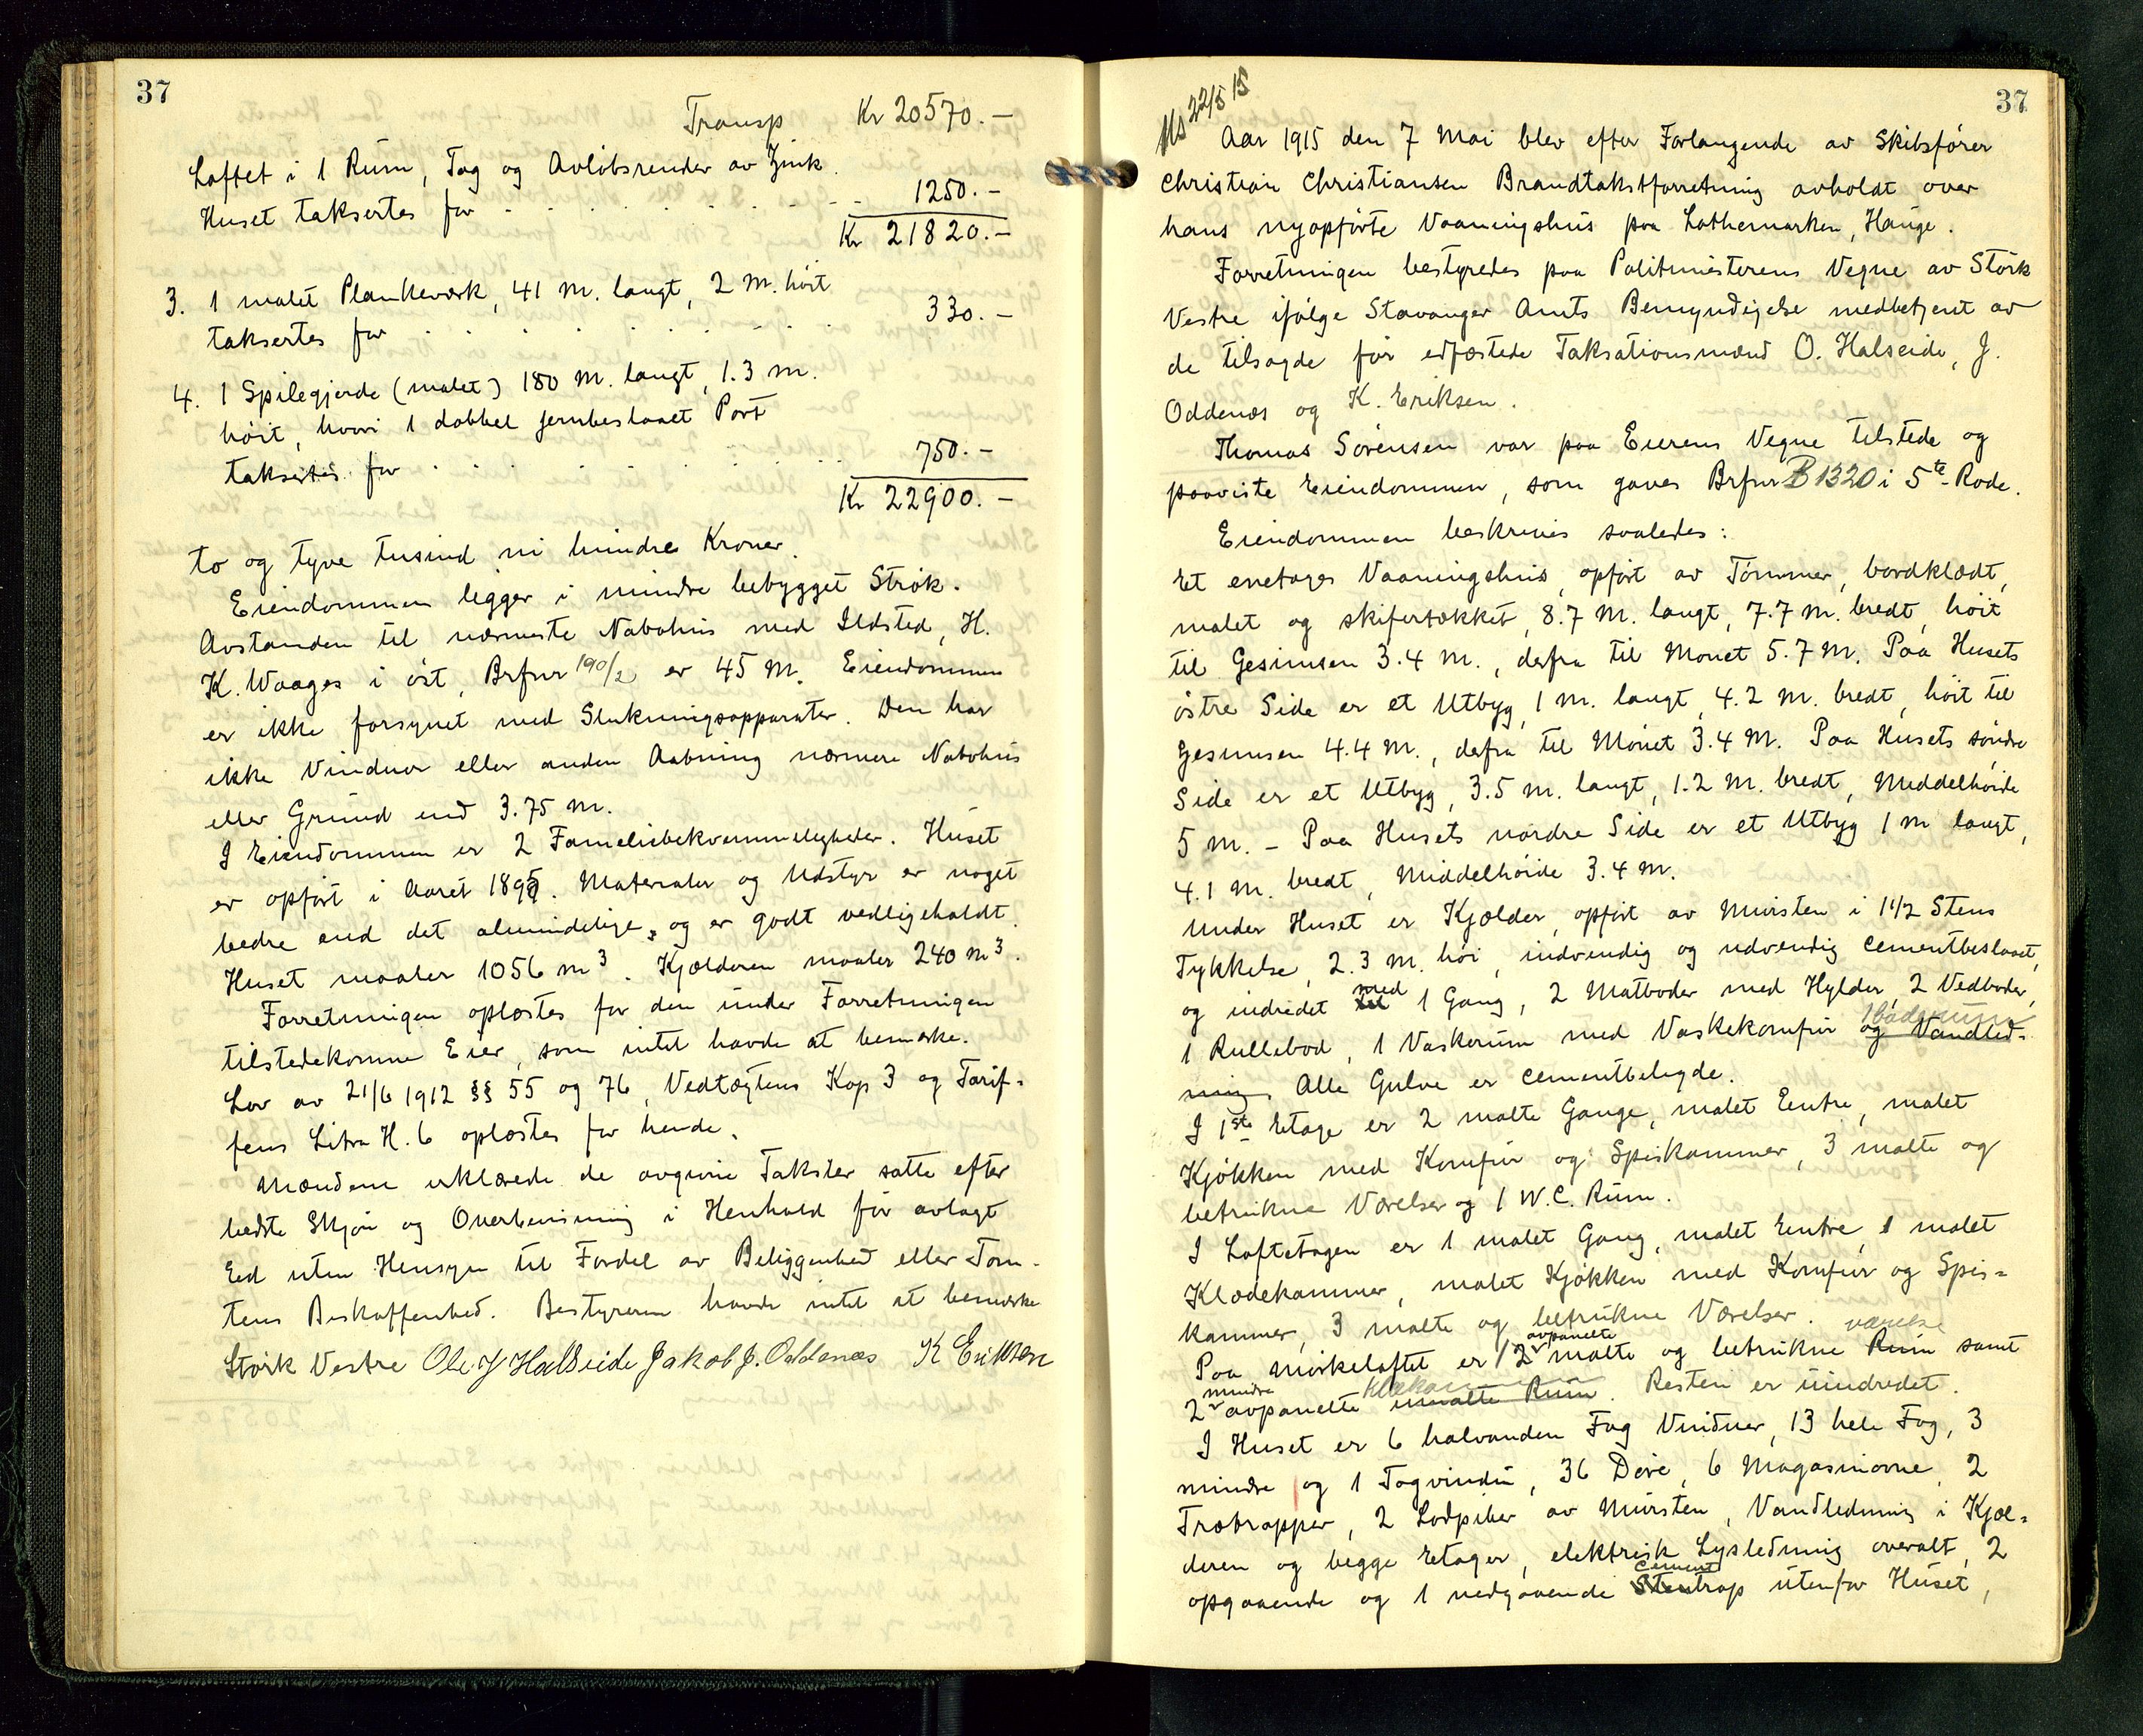 37
Transp Kr 20570.-
Loftet i 1 Rum, Tag og Avløbsrender av Zink.
Huset taksertes for . . . . . . . 1250.-
Kr 21820.-
3. 1 malet Plankeværk, 41 M. langt, 2 M. høit
taksertes for . . . . . . . 330.-
4. 1 Spilegjerde (malet) 180 M. langt, 1.3 M.
høit, hvori 1 dobbel jernbeslaaet Port
taksertes for . . . . . . . 750.-
Kr 22900.-
to og tyve tusind ni hundre Kroner.
Eiendommen ligger i mindre bebygget Strøk.
Avstanden til nærmeste Nabohus med Ildsted, H.
K. Waages i øst, Brfnr 190/2 er 45 M. Eiendommen
er ikke forsynet med Slukningsapparater. Den har
ikke Vinduer eller anden Aabning nærmere Nabohus
eller Grund end 3.75 M.
I Eiendommen er 2 Familiebekvemmeligheder. Huset
er opført i Aaret 1895. Materialer og Udstyr er noget
bedre end det almindelige, og er godt vedligeholdt.
Huset maaler 1056 m³. Kjælderen maaler 240 m³.
Forretningen oplæstes for den under Forretningen
tilstedekomne Eier, som intet havde at bemærke.
Lov av 21/6 1912 §§ 55 og 76, Vedtægtens Kap 3 og Tarif-
fens Litra H. 6 oplæstes for hende.
Mændene erklærede de avgivne Takster satte efter
bedste Skjøn og Overbevisning i Henhold før avlagt
Eed uten Hensyn til Fordel av Beliggenhed eller Tom-
tens Beskaffenhed. Bestyreren havde intet at bemærke
Størk Vestre Ole J Halseide Jakob J. Oddenæs K Eriksen
37
22/5 15
Aar 1915 den 7 Mai blev efter Forlangende av Skibsfører
Christian Christiansen Brandtakstforretning avholdt over
hans nyopførte Vaaningshus paa Lothemarken, Hauge.
Forretningen bestyredes paa Politimesterens Vegne av Størk
Vestre ifølge Stavanger Amts Bemyndigelse medbetjent av
de tilsagde før edfæstede Taksationsmænd O. Halseide, J.
Oddenæs og K. Eriksen.
Thomas Sørensen var paa Eierens Vegne tilstede og
paaviste Eiendommen, som gaves Brfnr B 1320 i 5te Rode.
Eiendommen beskrives saaledes:
Et enetages Vaaningshus, opført av Tømmer, bordklædt,
malet og skifertækket, 8.7 M. langt, 7.7 M. bredt, høit
til Gesimsen 3.4 M., derfra til Mønet 5.7 M. Paa Husets
østre Side er et Utbyg, 1 M. langt, 4.2 M. bredt, høit til
Gesimsen 4.4 M., derfra til Mønet 3.4 M. Paa Husets søndre
Side er et Utbyg, 3.5 M. langt, 1.2 M. bredt, Middelhøide
5 M. - Paa Husets nordre Side er et Utbyg 1 M langt,
4.1 M. bredt, Middelhøide 3.4 M.
Under Huset er Kjælder, opført av Mursten i 1 1/2 Stens
Tykkelse, 2.3 M. høi, indvendig og udvendig cementbeslaaet,
og indredet til med 1 Gang, 2 Matboder med Hylder, 2 Vedboder,
1 Rullebod, 1 Vaskerum med Vaskekomfur og Vandled- 1 baderum
ning. Alle Gulve er cementbelagde.
I 1ste Etage er 2 malte Gange, malet Entre, malet
Kjøkken med Komfur og Spiskammer, 3 malte og
betrukne Værelser og 1 W.C. Rum.
I Loftetagen er 1 malet Gang, malet Entre, 1 malet
Klædekammer, malet Kjøkken med Komfur og Spis-
kammer, 3 malte og betrukne Værelser.
Paa Mørkeloftet er 1 2 avpanelte malte og betrukne Rum værelse samt
2 mindre avpanelte umalte Rum. Resten er uindredet.
I Huset er 6 halvanden Fag Vinduer, 13 hele Fag, 3
mindre og 1 Tagvindu, 36 Døre, 6 Magasinovne, 2
Trætrapper, 2 Lodpiber av Mursten, Vandledning i Kjæl-
deren og begge Etager, elektrisk Lysledning overalt, 2
opgaaende og 1 nedgaaende Sten cement trap utenfor Huset,